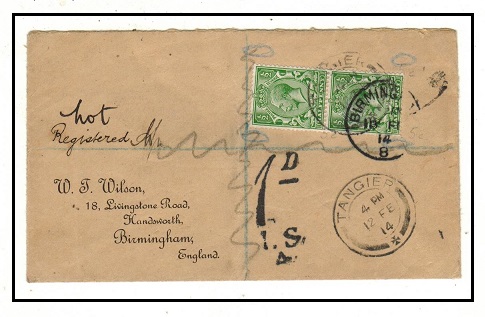 hot
Registered
W. T. Wilson,
18, Livingstone Road,
Handsworth,
Birmingham,
England.
BIRMING
18
14
B
1 D
T.S.
TANGIER
4 PM
12 FE
14